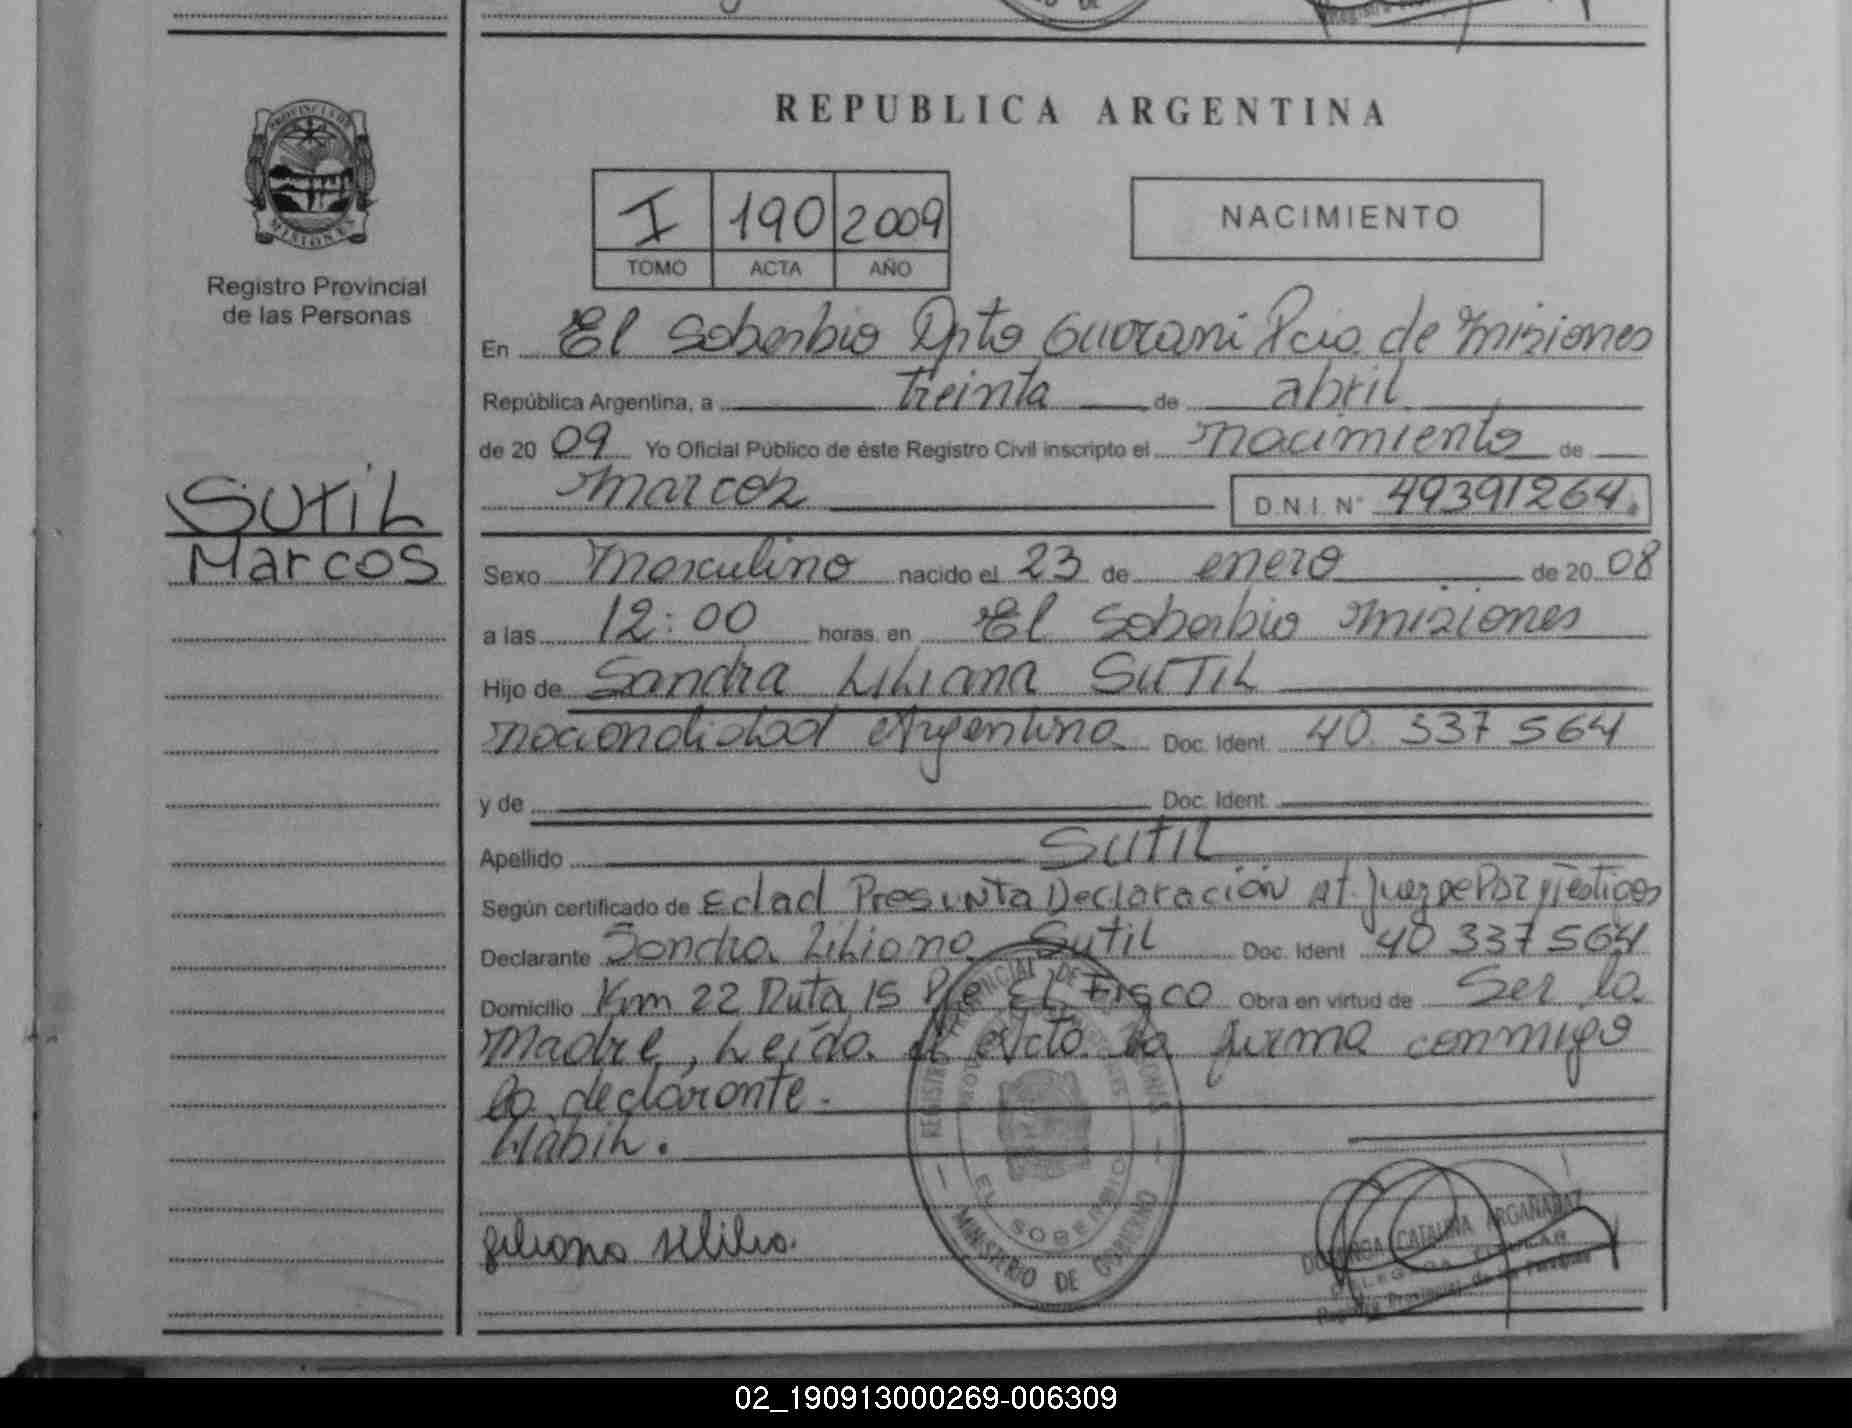 REPUBLICA ARGENTINA
PROVINCIA DE
MISIONES
Registro Provincial
de las Personas
I 190 2009
TOMO ACTA AÑO
NACIMIENTO
En El Soberbio Dpto Guarani Pcia. de Misiones
República Argentina, a treinta de abril
de 20 09 Yo Oficial Público de éste Registro Civil inscripto el nacimiento de
Marcos D.N.I. N° 49391264.
SUTIL
Marcos
Sexo Masculino nacido el 23 de enero de 20 08
a las 12:00 horas, en El Soberbio Misiones
Hijo de Sandra Liliana SUTIL
nacionalidad Argentina Doc. Ident. 40.337564
y de Doc. Ident.
Apellido SUTIL
Según certificado de Edad Presunta Declaración At. Juez de Paz y Testigos
Declarante Sandra Liliana Sutil Doc. Ident 40 337 564
Domicilio Km 22 Ruta 15 Pje El Fisco Obra en virtud de Ser la
Madre, Leída el Acta la firma conmigo
la declarante.
Habil.
REGISTRO PROVINCIAL DE LAS PERSONAS
EL SOBERBIO
MINISTERIO DE GOBIERNO
CATALINA ARGAÑARAZ
DELEGADA TITULAR
Registro Provincial de las Personas
02_190913000269-006309